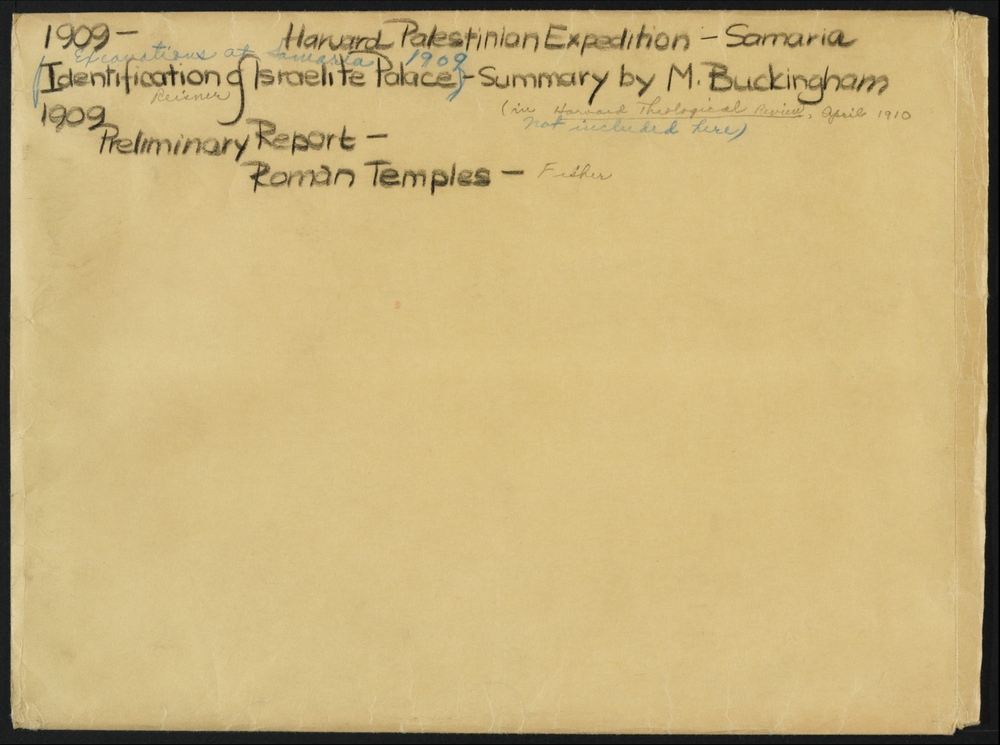 1909- Harvard Palestinian Expedition - Samaria
{ Excavations at Samaria 1909 }
Identification of Israelite Palace - Summary by M. Buckingham
Reisner
(in Harvard Theological Review, April 1910
not included here)
1909
Preliminary Report -
Roman Temples - Fisher